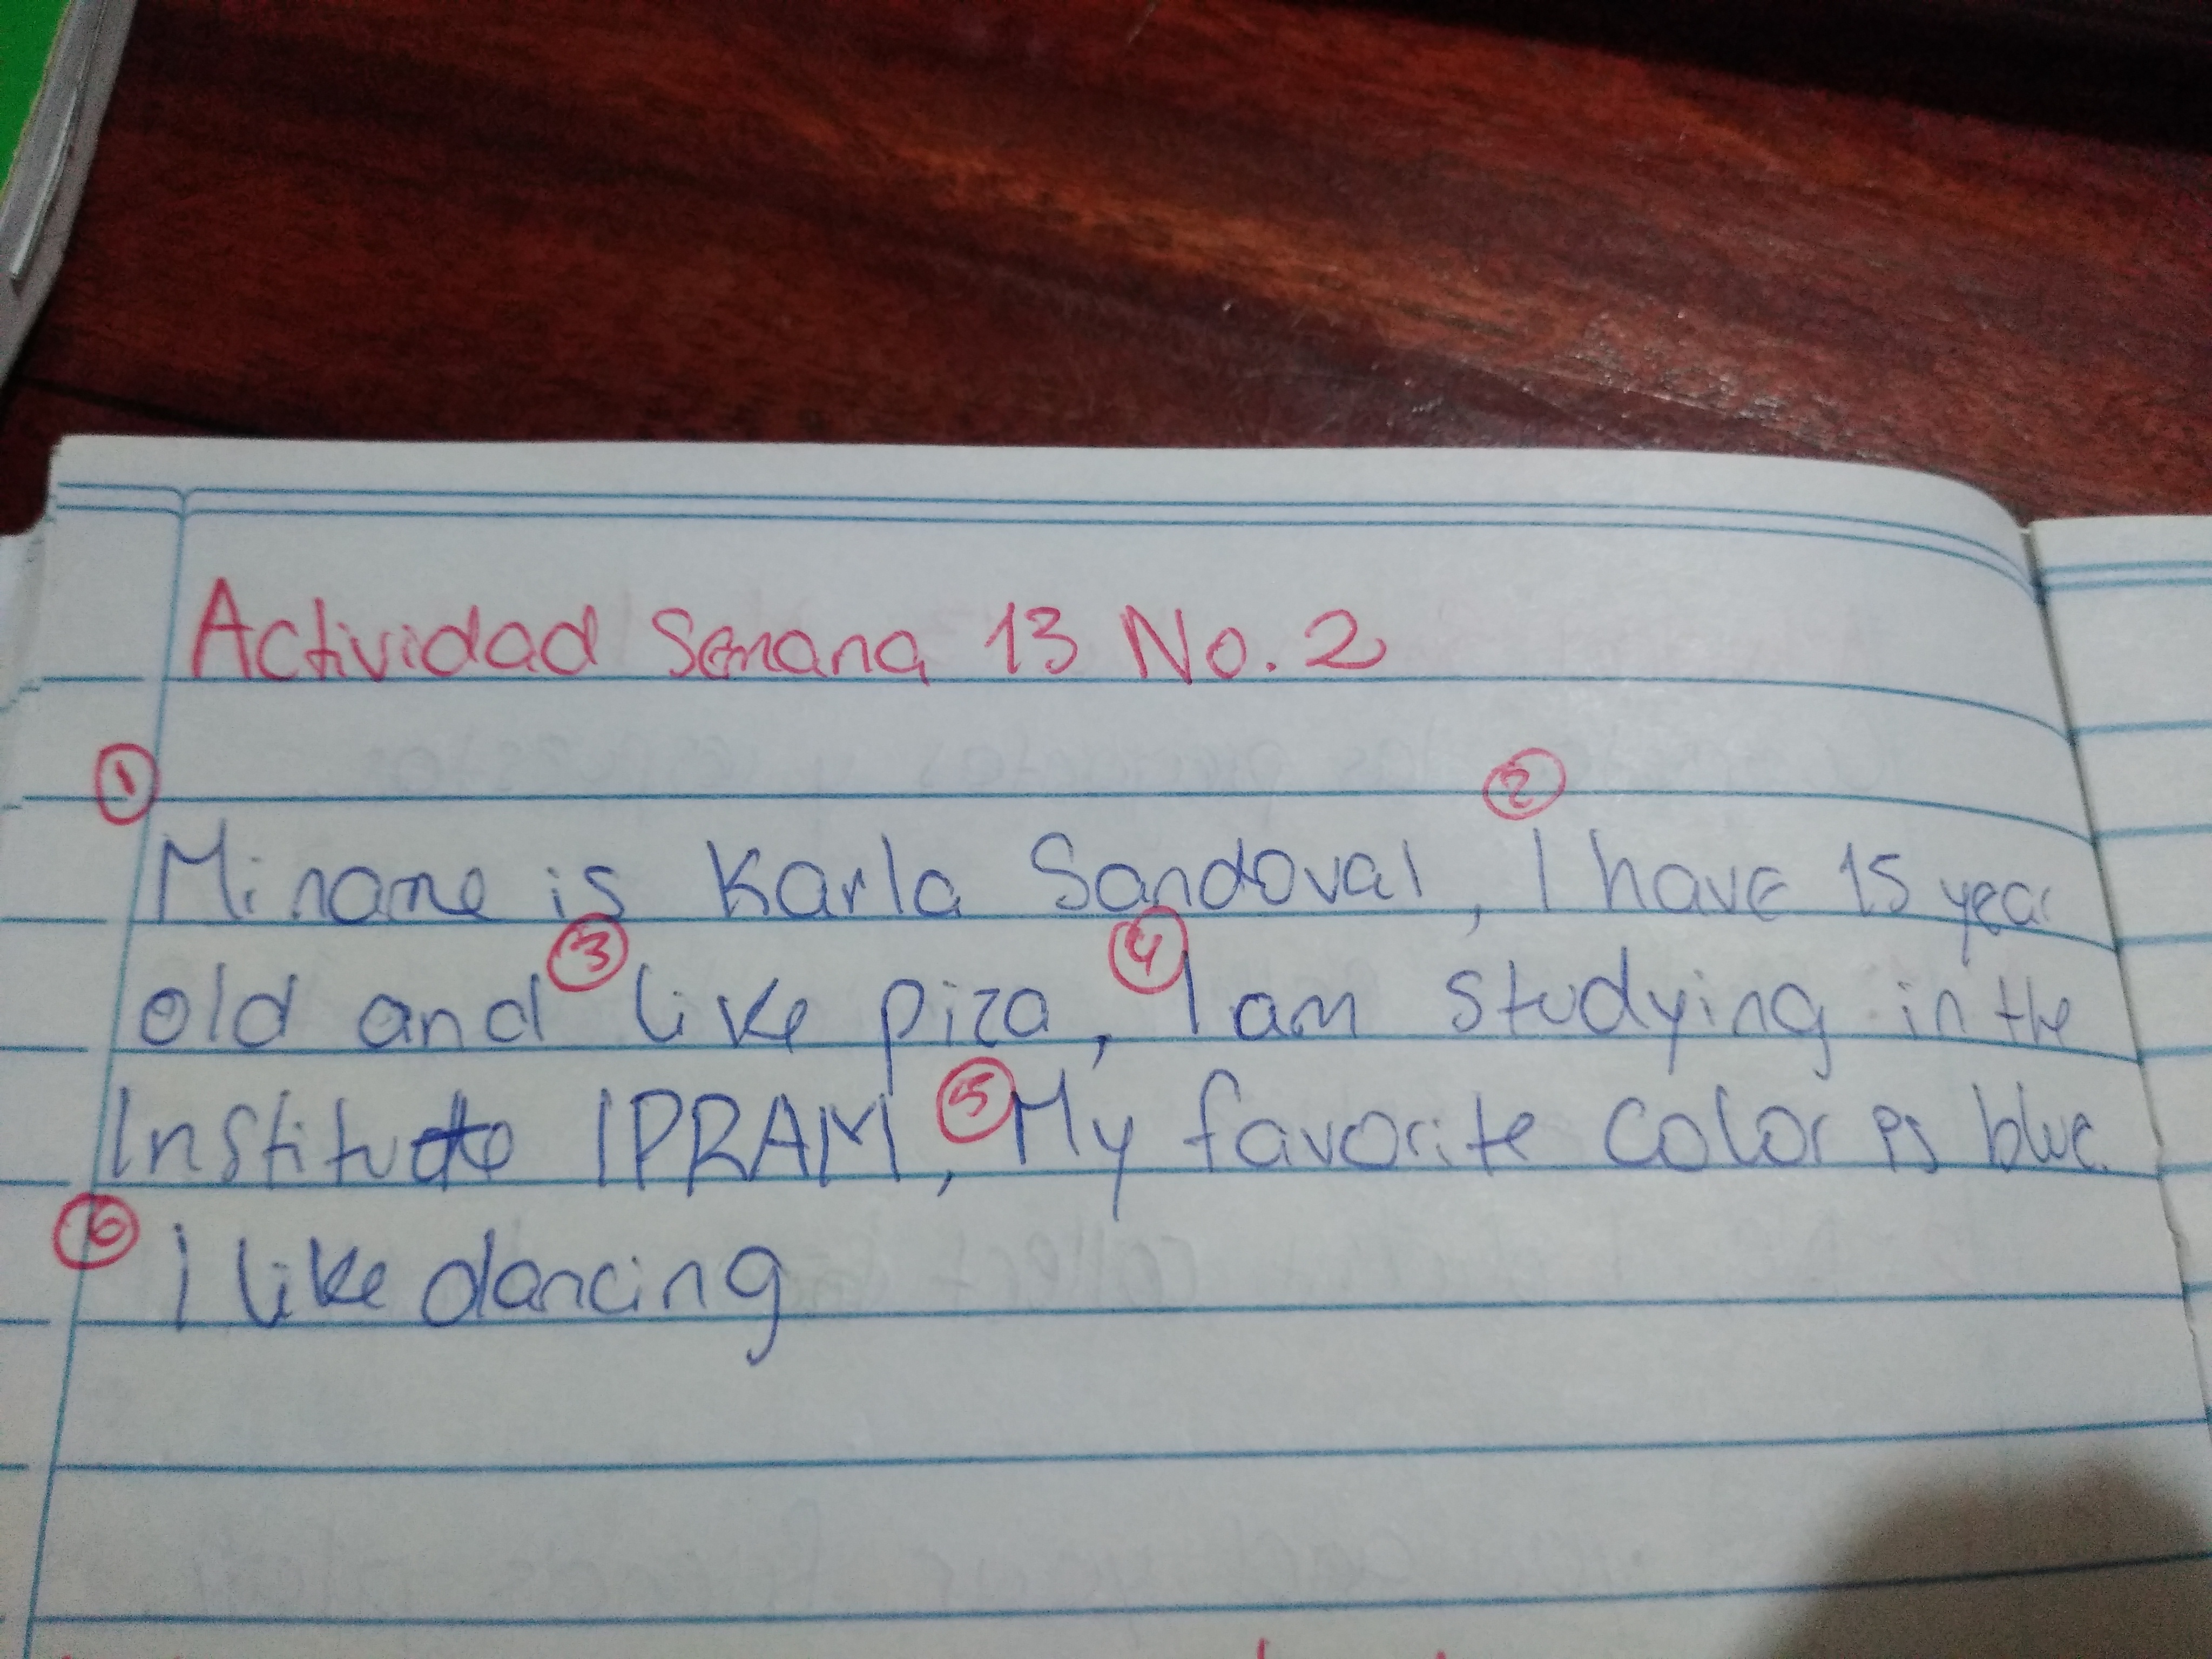 Actividad Semana 13 No. 2
① ②
Mi name is Karla Sandoval, I have 15 year
old and ③ like piza, ④ I am studying in the
Institute IPRAM, ⑤ My favorite color is blue.
⑥ i like dancing